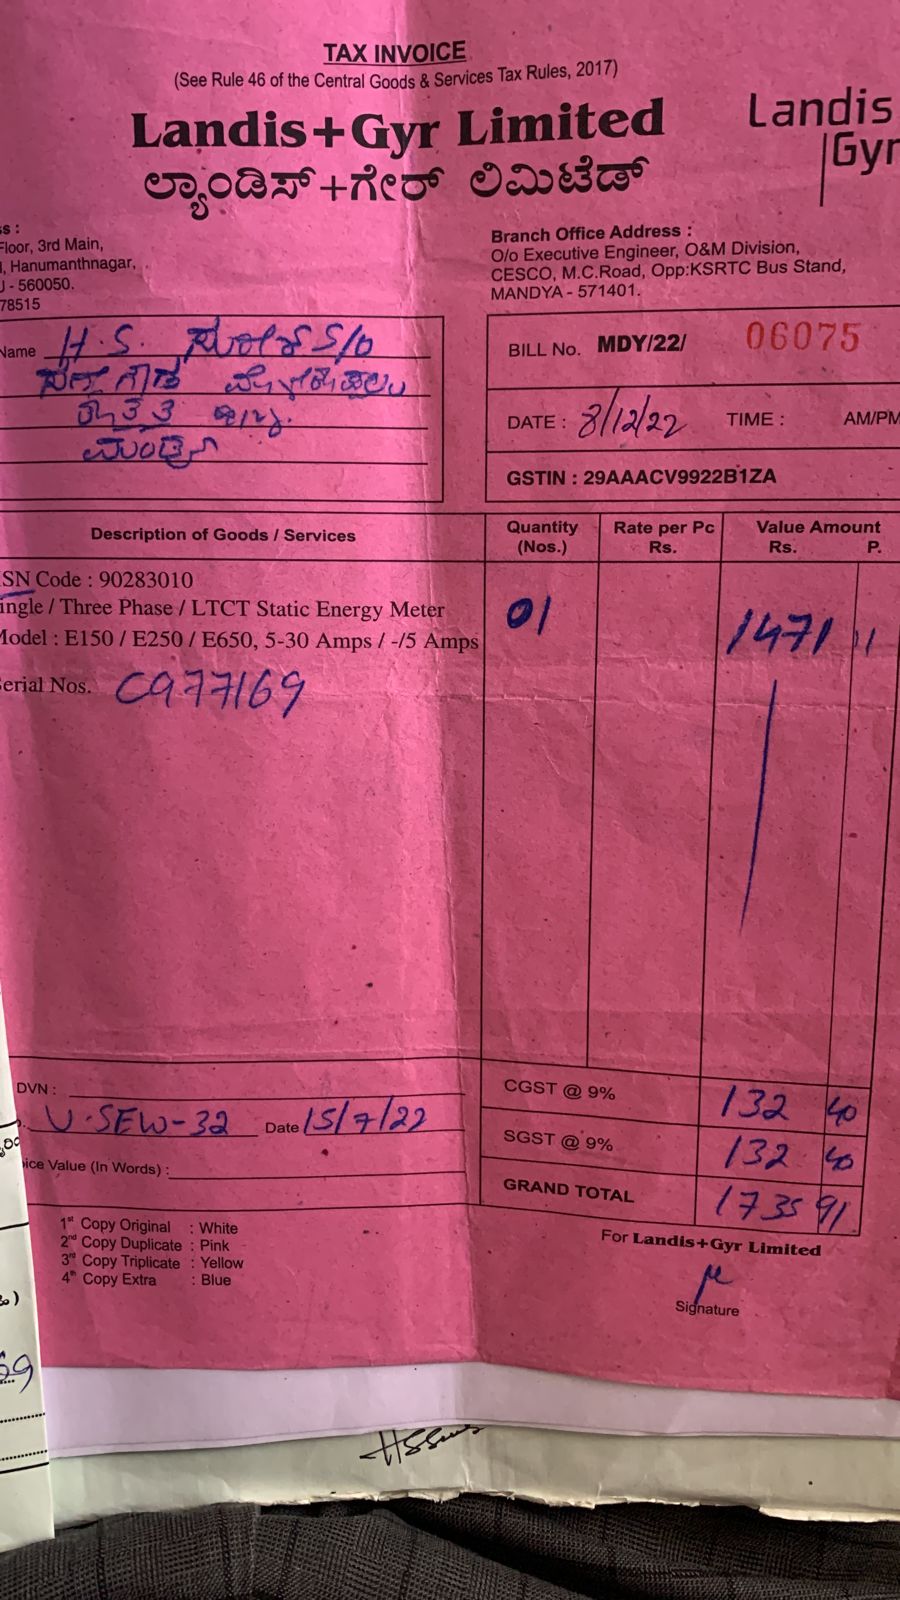 TAX INVOICE
(See Rule 46 of the Central Goods & Services Tax Rules, 2017)
Landis+Gyr Limited
ಲ್ಯಾಂಡಿಸ್+ಗೇರ್ ಲಿಮಿಟೆಡ್
Landis
Gyr
Floor, 3rd Main,
Hanumanthnagar,
- 560050.
78515
Branch Office Address :
O/o Executive Engineer, O&M Division,
CESCO, M.C.Road, Opp:KSRTC Bus Stand,
MANDYA - 571401.
Name H.S. S/o
BILL No. MDY/22/ 06075
DATE : 8/12/22 TIME : AM/PM
GSTIN : 29AAACV9922B1ZA
Description of Goods / Services
Quantity (Nos.)
Rate per Pc Rs.
Value Amount Rs. P.
SN Code : 90283010
ingle / Three Phase / LTCT Static Energy Meter
Model : E150 / E250 / E650, 5-30 Amps / -/5 Amps
01
1471 11
Serial Nos. C977169
DVN :
U-SEW-32 Date 15/7/22
ice Value (In Words) :
CGST @ 9% 132 40
SGST @ 9% 132 40
GRAND TOTAL 1735 91
1st Copy Original : White
2nd Copy Duplicate : Pink
3rd Copy Triplicate : Yellow
4th Copy Extra : Blue
For Landis+Gyr Limited
Signature